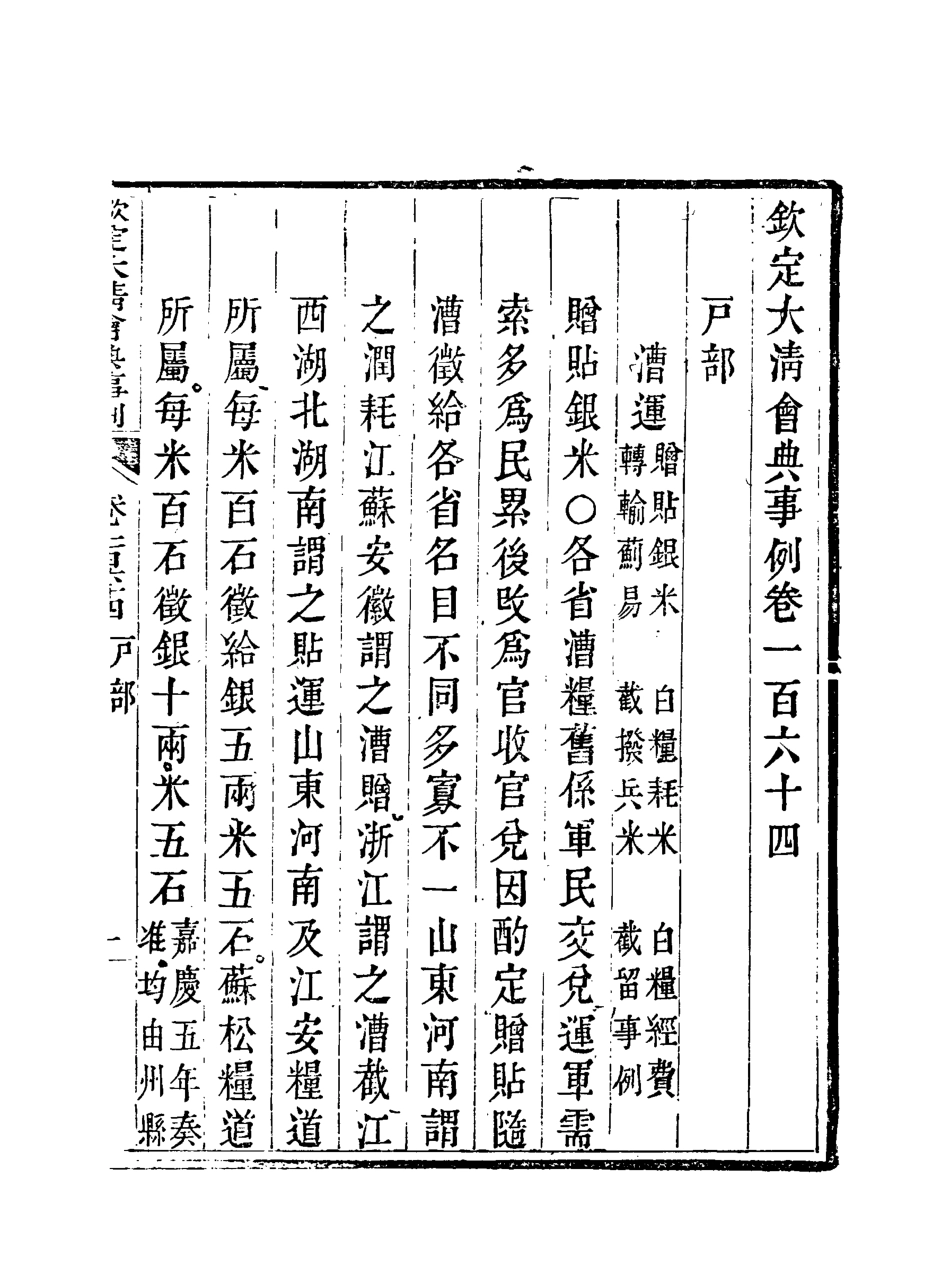 欽定大淸會典事例卷一百六十四
戸部
漕運
贈貼銀米 白糧耗米 白糧經費
轉輸薊易 截撥兵米 截留事例
贈貼銀米○各省漕糧舊係軍民交兌運軍需
索多爲民累後改爲官收官兌因酌定贈貼隨
漕徵給各省名目不同多寡不一山東河南謂
之潤耗江蘇安徽謂之漕贈浙江謂之漕截江
西湖北湖南謂之貼運山東河南及江安糧道
所屬每米百石徵給銀五兩米五石蘇松糧道
所屬每米百石徵銀十兩米五石
嘉慶五年奏
准均由州縣
欽定大淸會典事例 卷一百六十四 戸部 一